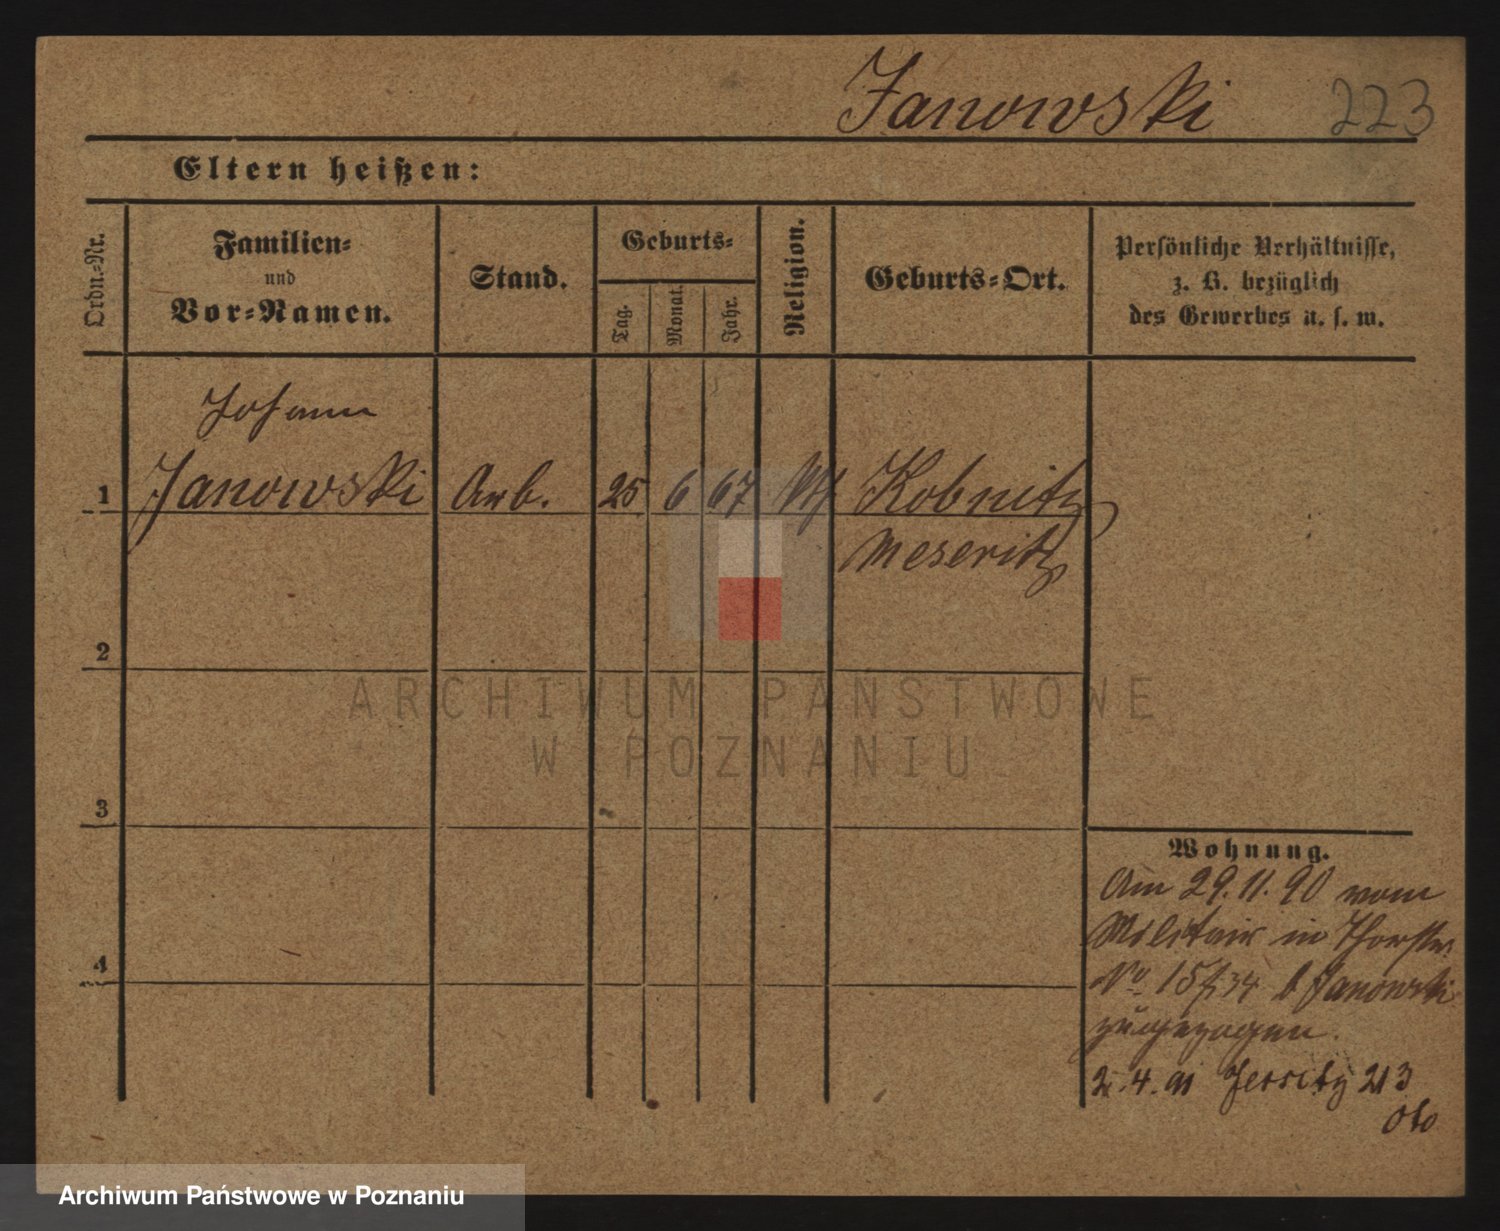 Janowski 223
Eltern heißen:
Ordn.-Nr.
Familien-
und
Vor-Namen.
Stand.
Geburts-
Tag.
Monat.
Jahr.
Religion.
Geburts-Ort.
Persönliche Verhältnisse,
z. B. bezüglich
des Gewerbes u. s. w.
Johann
1 Janowski Arb. 25 6 67 Kobnitz
Meseritz
2
3
4
ARCHIWUM PAŃSTWOWE
W POZNANIU
Wohnung.
Am 29.11.90 vom
Militair in
No 15 b Janowski
zugezogen.
2.4.91 Jersitz 213
Archiwum Państwowe w Poznaniu